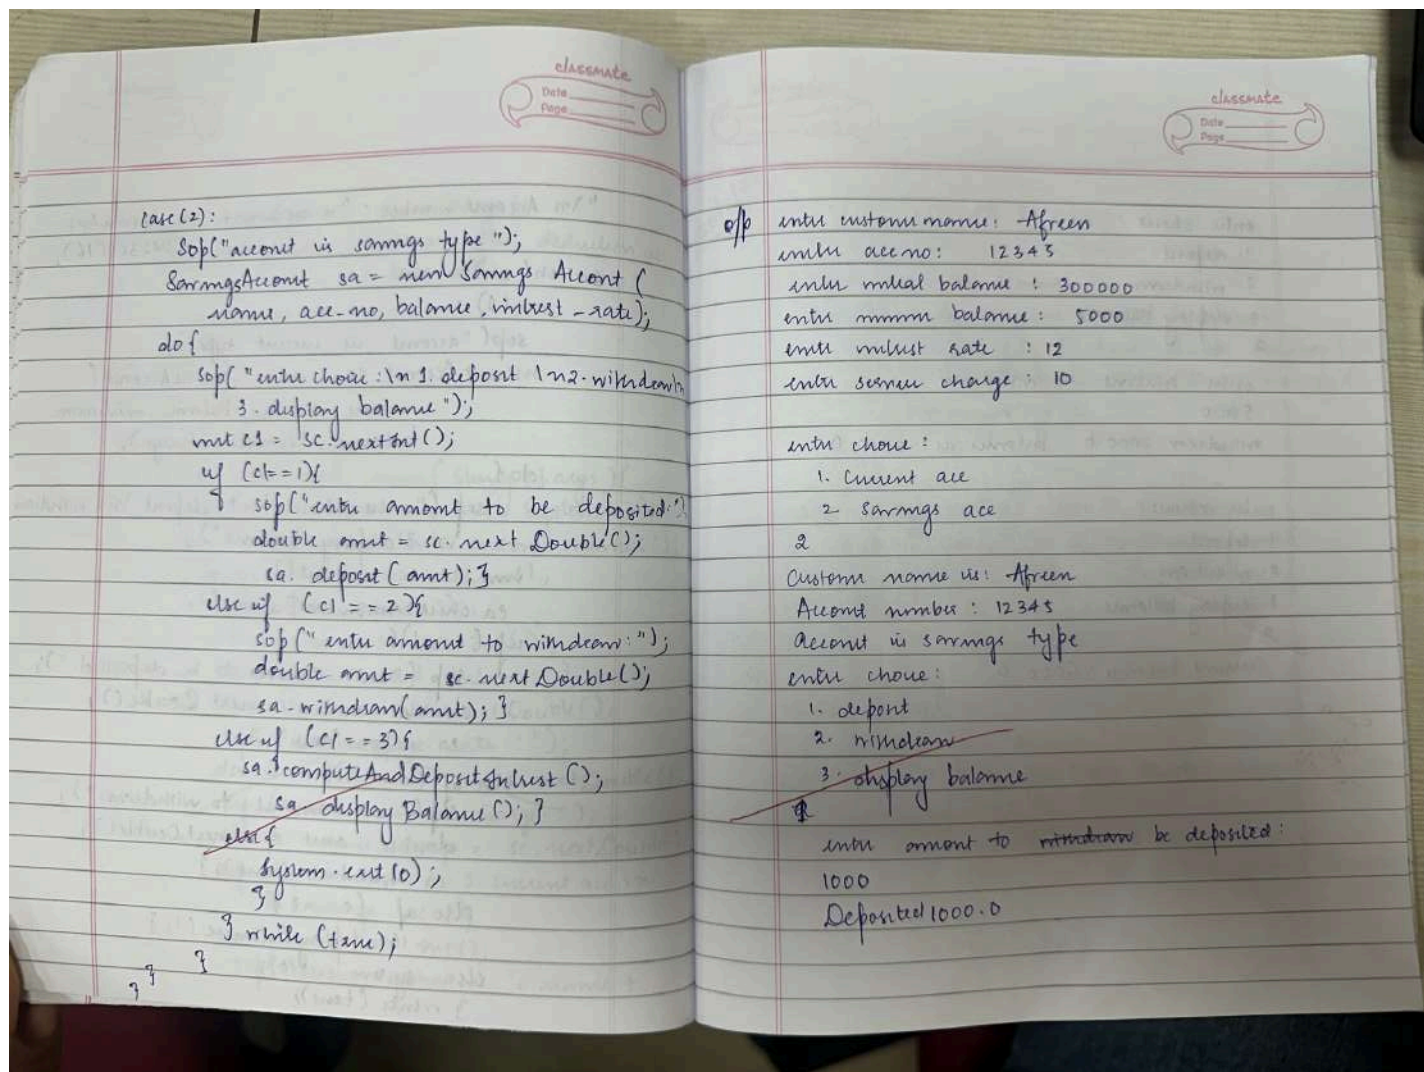 classmate
Date
Page
case(2):
sop("account is savings type");
SavingsAccount sa = new Savings Account (
name, acc-no, balance, interest-rate);
do{
sop("enter choice:\n 1. deposit \n2. withdraw\n
3. display balance");
int c1 = sc.nextInt();
if (c1==1){
sop("enter amount to be deposited:")
double amt = sc. next Double();
sa. deposit(amt);}
else if (c1==2){
sop("enter amount to withdraw:");
double amt = sc.next Double();
sa.withdraw(amt);}
else if (c1==3){
sa. computeAndDepositInterest();
sa display Balance();}
else{
System.exit(0);
}
} while (true);
}
}
}
classmate
Date
Page
o/p enter customer name: Afreen
enter acc no: 12345
enter initial balance : 300000
enter balance: 5000
enter interest rate : 12
enter service charge: 10
enter choice:
1. Current acc
2 Savings acc
2
Customer name is: Afreen
Account number: 12345
account is savings type
enter choice:
1. deposit
2. withdraw
3. display balance
enter amount to withdraw be deposited:
1000
Deposited 1000.0